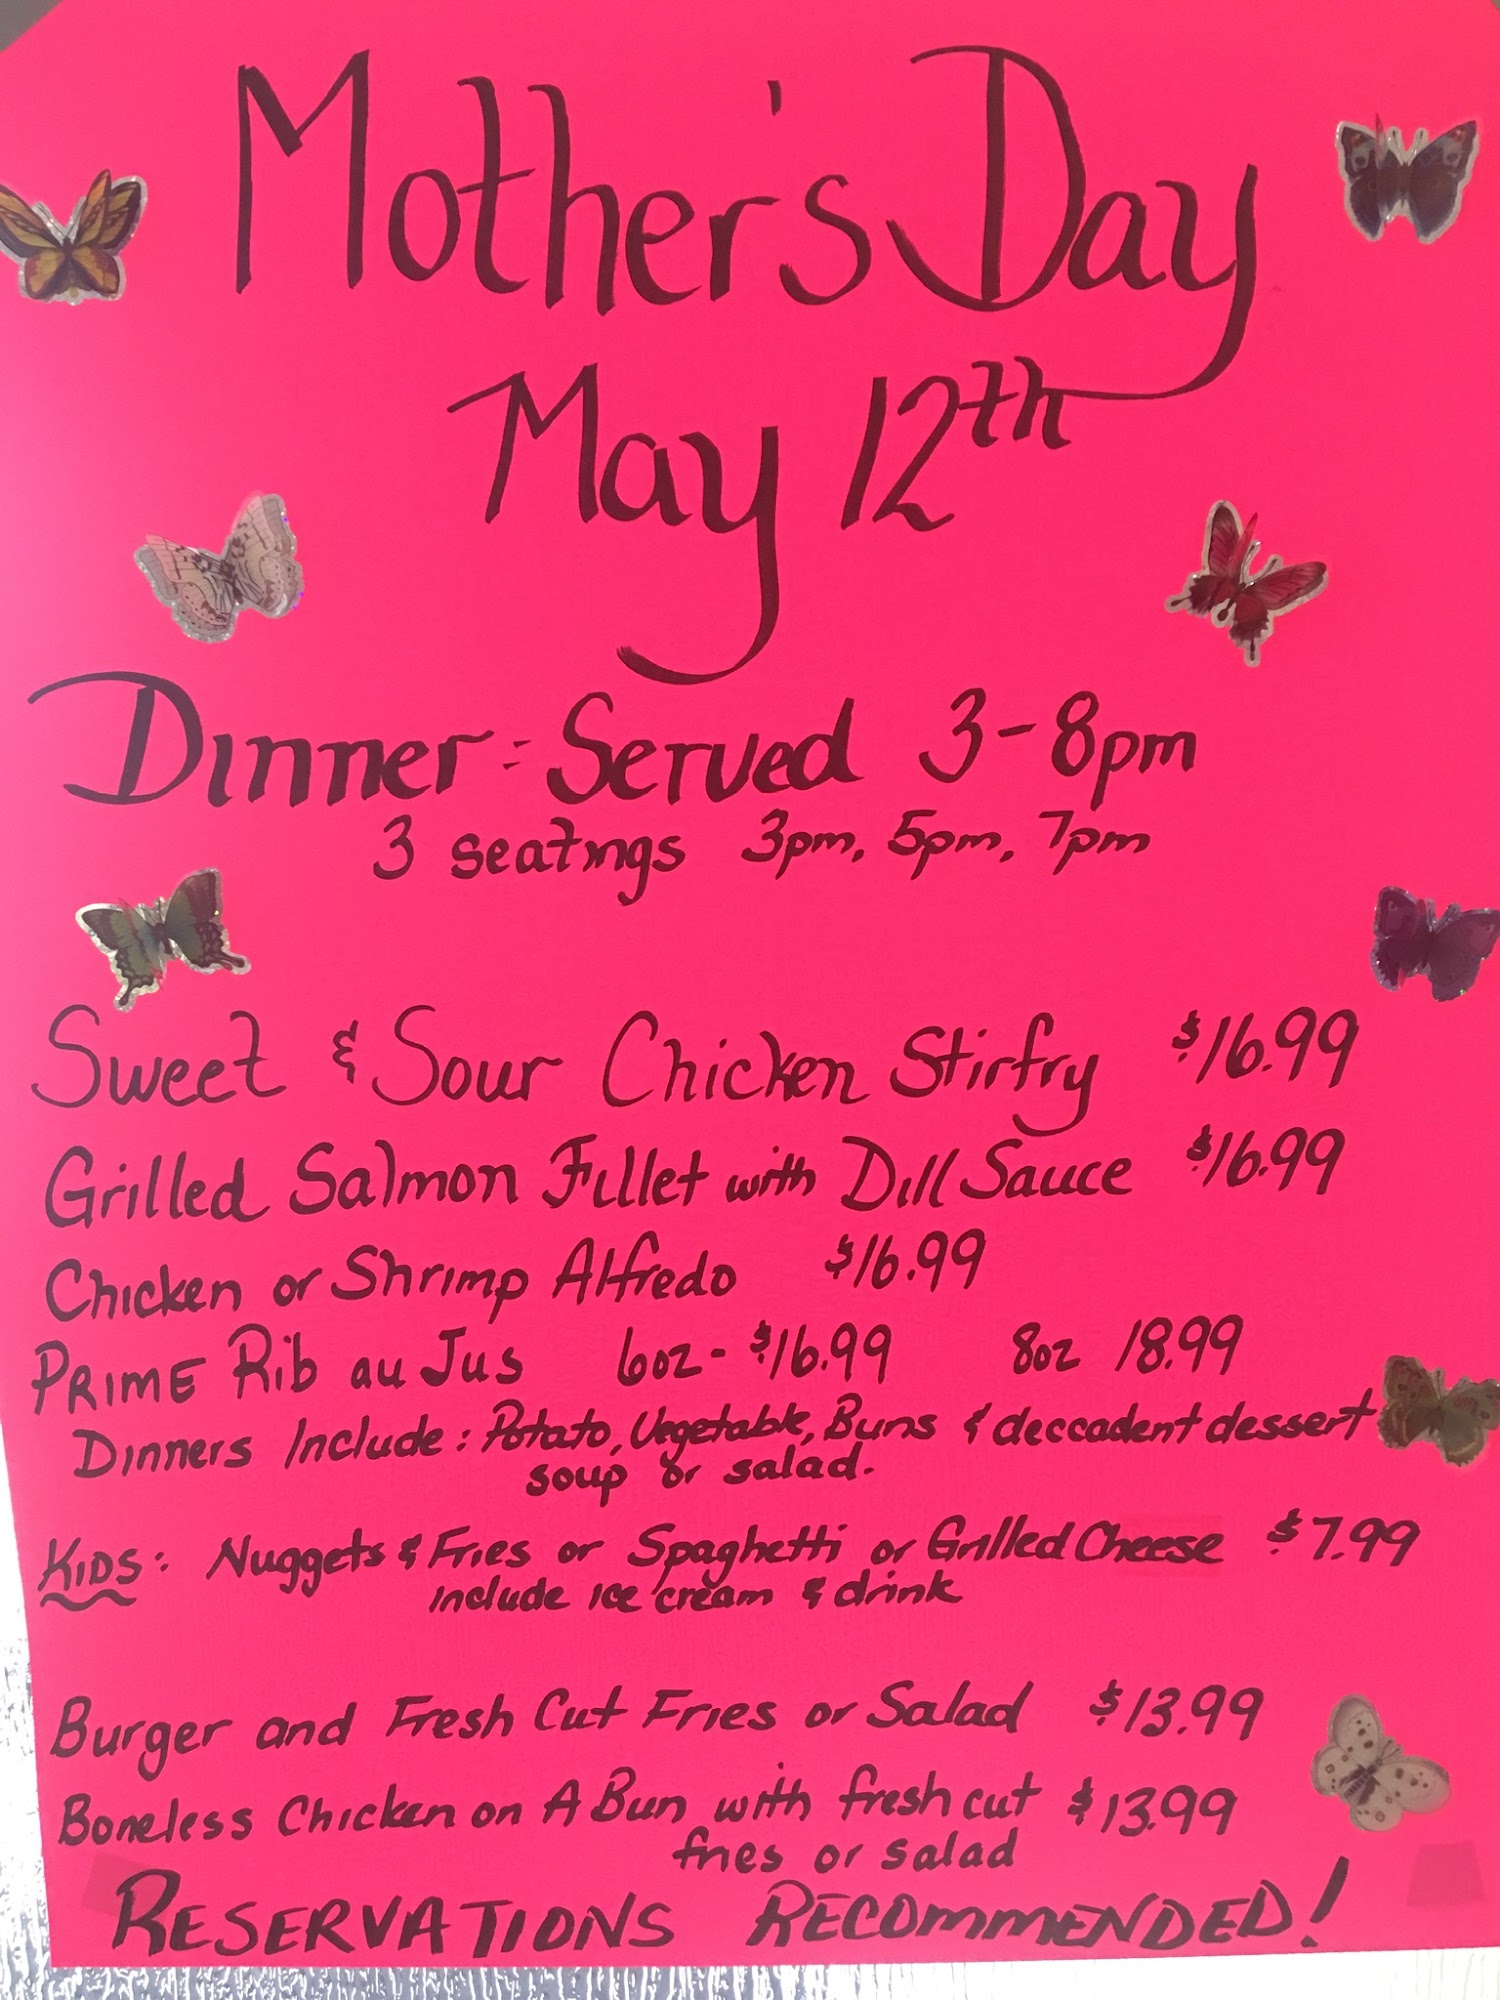 Mother's Day
May 12th
Dinner - Served 3-8pm
3 seatings 3pm, 5pm, 7pm
Sweet & Sour Chicken Stirfry $16.99
Grilled Salmon Fillet with Dill Sauce $16.99
Chicken or Shrimp Alfredo $16.99
PRIME Rib au Jus 6oz - $16.99 8oz 18.99
Dinners Include: Potato, Vegetable, Buns & deccadent dessert
soup or salad.
KIDS: Nuggets & Fries or Spaghetti or Grilled Cheese $7.99
include ice cream & drink
Burger and Fresh Cut Fries or Salad $13.99
Boneless Chicken on A Bun with fresh cut $13.99
fries or salad
RESERVATIONS RECOMMENDED!